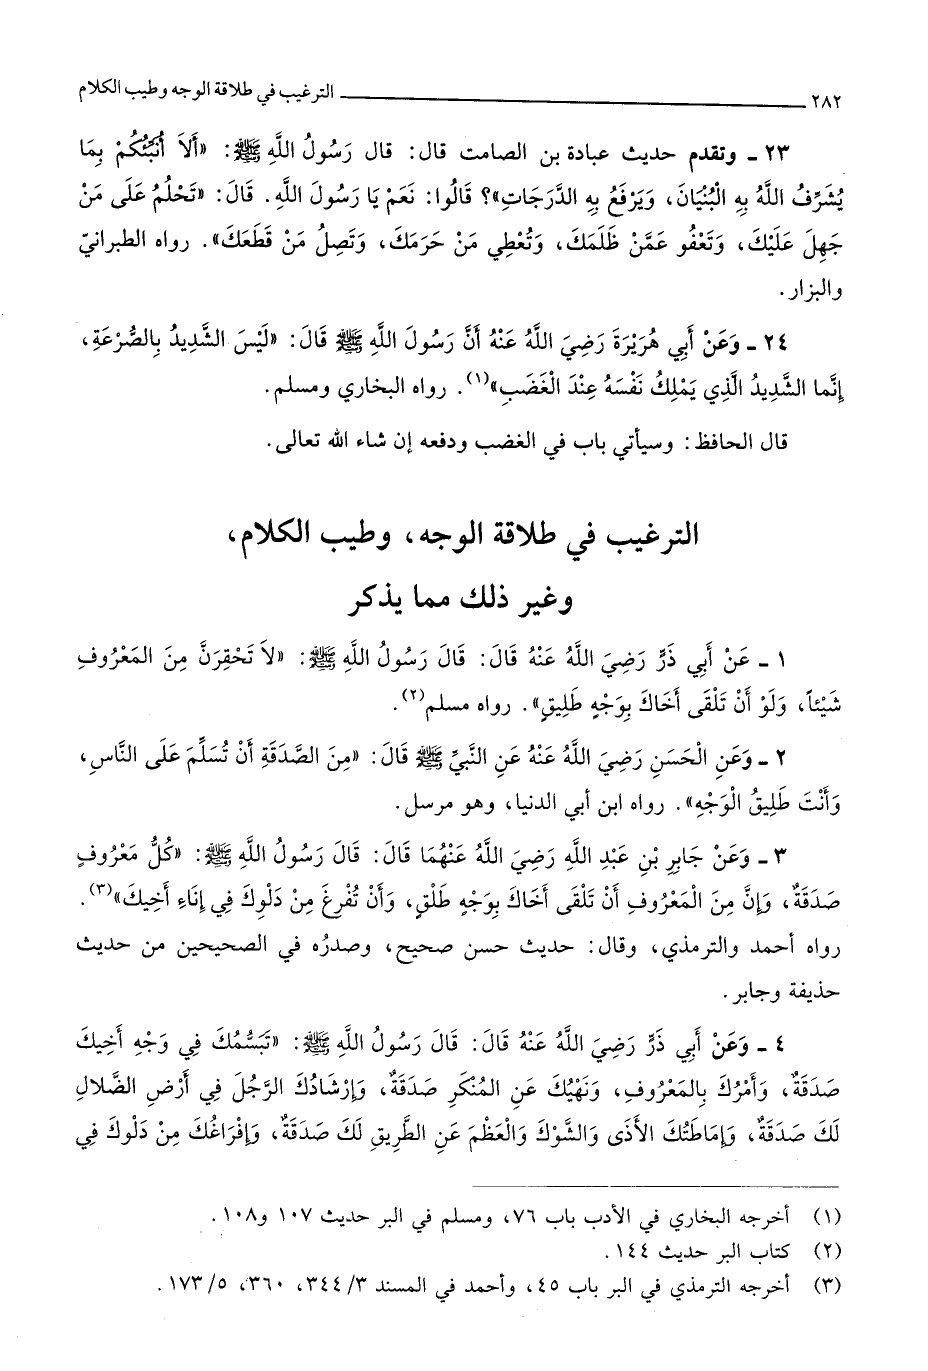 ٢٨٢ ــــــــ الترغيب في طلاقة الوجه وطيب الكلام
٢٣ ـ وتقدم حديث عبادة بن الصامت قال: قال رَسُولُ اللَّهِ ﷺ: «أَلاَ أُنَبِّئُكُمْ بِمَا
يُشَرِّفُ اللَّهُ بِهِ الْبُنْيَانَ، وَيَرْفَعُ بِهِ الدَّرَجَاتِ»؟ قَالُوا: نَعَمْ يَا رَسُولَ اللَّهِ. قَالَ: «تَحْلُمُ عَلَى مَنْ
جَهِلَ عَلَيْكَ، وَتَعْفُو عَمَّنْ ظَلَمَكَ، وَتُعْطِي مَنْ حَرَمَكَ، وَتَصِلُ مَنْ قَطَعَكَ». رواه الطبرانيّ
والبزار.
٢٤ ـ وَعَنْ أَبِي هُرَيْرَةَ رَضِيَ اللَّهُ عَنْهُ أَنَّ رَسُولَ اللَّهِ ﷺ قَالَ: «لَيْسَ الشَّدِيدُ بِالصُّرْعَةِ،
إِنَّما الشَّدِيدُ الَّذِي يَمْلِكُ نَفْسَهُ عِنْدَ الْغَضَبِ»(١). رواه البخاري ومسلم.
قال الحافظ: وسيأتي باب في الغضب ودفعه إن شاء الله تعالى.
الترغيب في طلاقة الوجه، وطيب الكلام،
وغير ذلك مما يذكر
١ ـ عَنْ أَبِي ذَرٍّ رَضِيَ اللَّهُ عَنْهُ قَالَ: قَالَ رَسُولُ اللَّهِ ﷺ: «لاَ تَحْقِرَنَّ مِنَ المَعْرُوفِ
شَيْئاً، وَلَوْ أَنْ تَلْقَى أَخَاكَ بِوَجْهٍ طَلِيقٍ». رواه مسلم(٢).
٢ ـ وَعَنِ الْحَسَنِ رَضِيَ اللَّهُ عَنْهُ عَنِ النَّبِيِّ ﷺ قَالَ: «مِنَ الصَّدَقَةِ أَنْ تُسَلِّمَ عَلَى النَّاسِ،
وَأَنْتَ طَلِيقُ الْوَجْهِ». رواه ابن أبي الدنيا، وهو مرسل.
٣ ـ وَعَنْ جَابِرِ بْنِ عَبْدِ اللَّهِ رَضِيَ اللَّهُ عَنْهُمَا قَالَ: قَالَ رَسُولُ اللَّهِ ﷺ: «كُلُّ مَعْرُوفٍ
صَدَقَةٌ، وَإِنَّ مِنَ الْمَعْرُوفِ أَنْ تَلْقَى أَخَاكَ بِوَجْهٍ طَلْقٍ، وَأَنْ تُفْرِغَ مِنْ دَلْوِكَ فِي إِنَاءِ أَخِيكَ»(٣).
رواه أحمد والترمذي، وقال: حديث حسن صحيح، وصدرُه في الصحيحين من حديث
حذيفة وجابر.
٤ ـ وَعَنْ أَبِي ذَرٍّ رَضِيَ اللَّهُ عَنْهُ قَالَ: قَالَ رَسُولُ اللَّهِ ﷺ: «تَبَسُّمُكَ فِي وَجْهِ أَخِيكَ
صَدَقَةٌ، وَأَمْرُكَ بِالمَعْرُوفِ، وَنَهْيُكَ عَنِ المُنْكَرِ صَدَقَةٌ، وَإِرْشَادُكَ الرَّجُلَ فِي أَرْضِ الضَّلالِ
لَكَ صَدَقَةٌ، وَإِمَاطَتُكَ الأَذَى وَالشَّوْكَ وَالْعَظْمَ عَنِ الطَّرِيقِ لَكَ صَدَقَةٌ، وَإِفْرَاغُكَ مِنْ دَلْوِكَ فِي
(١) أخرجه البخاري في الأدب باب ٧٦، ومسلم في البر حديث ١٠٧ و١٠٨.
(٢) كتاب البر حديث ١٤٤.
(٣) أخرجه الترمذي في البر باب ٤٥، وأحمد في المسند ٣/ ٣٤٤، ٣٦٠، ٥/ ١٧٣.